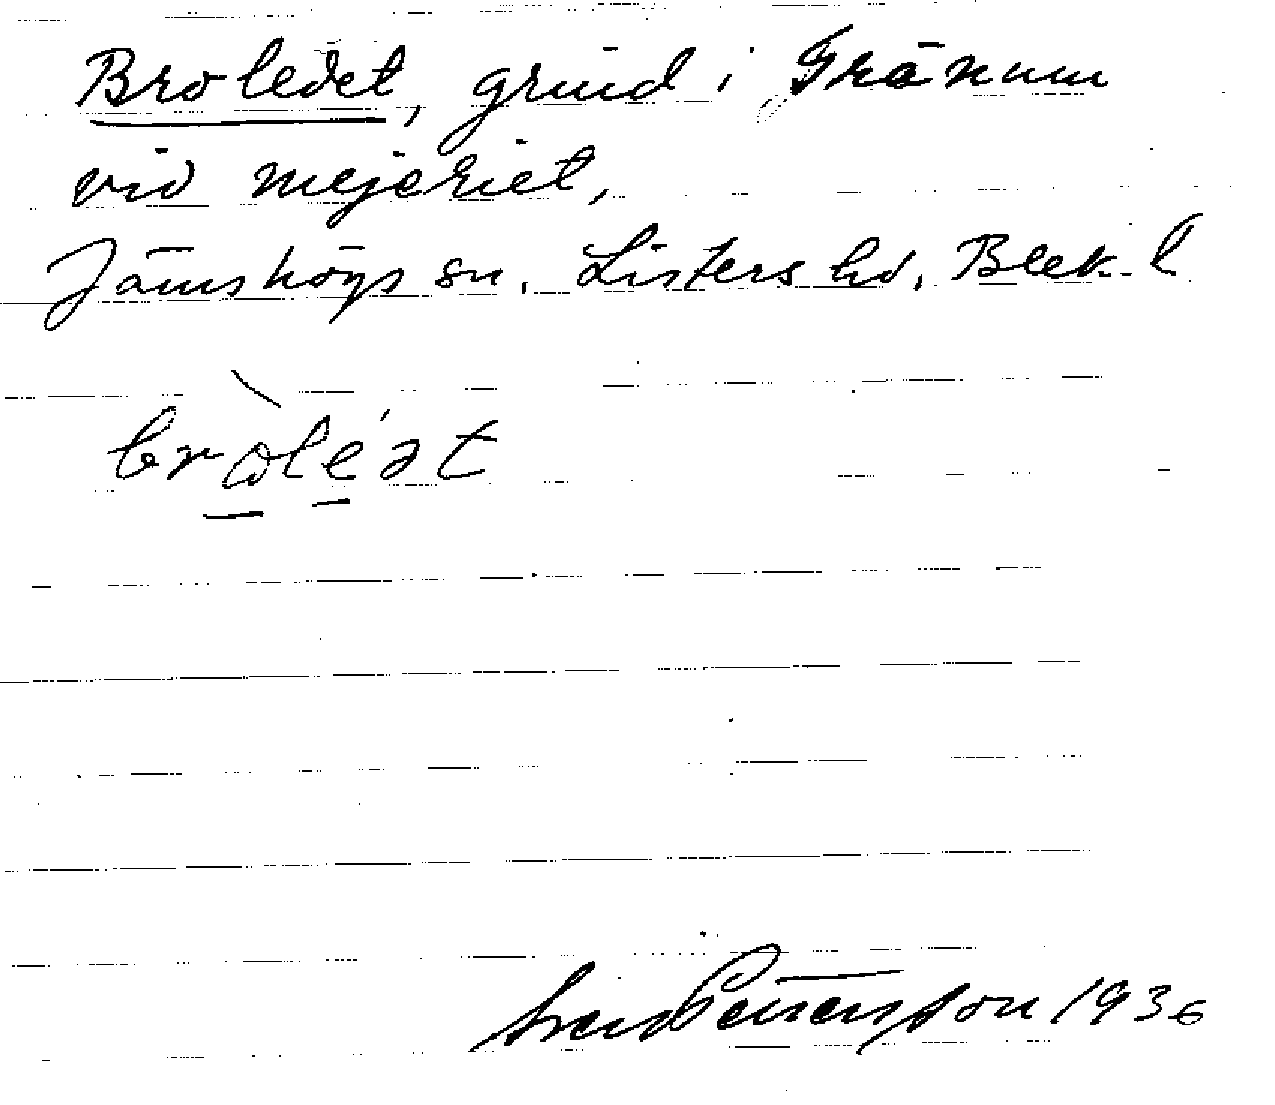 Broledet, grind i Gränum
vid mejeriet,
Jämshögs sn, Listers hd, Blek. l
bròlé ət
1936